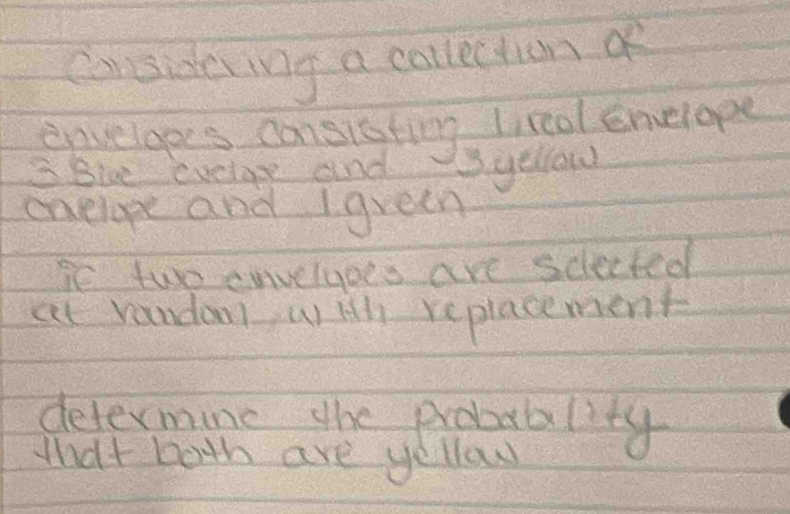 Considering a collection of
envelopes consisting 1 real Envelope
3 Blue evelope and 3 yellow
envelope and 1 green
if two envelopes are selected
at random with replacement
determine the probability
that both are yellow